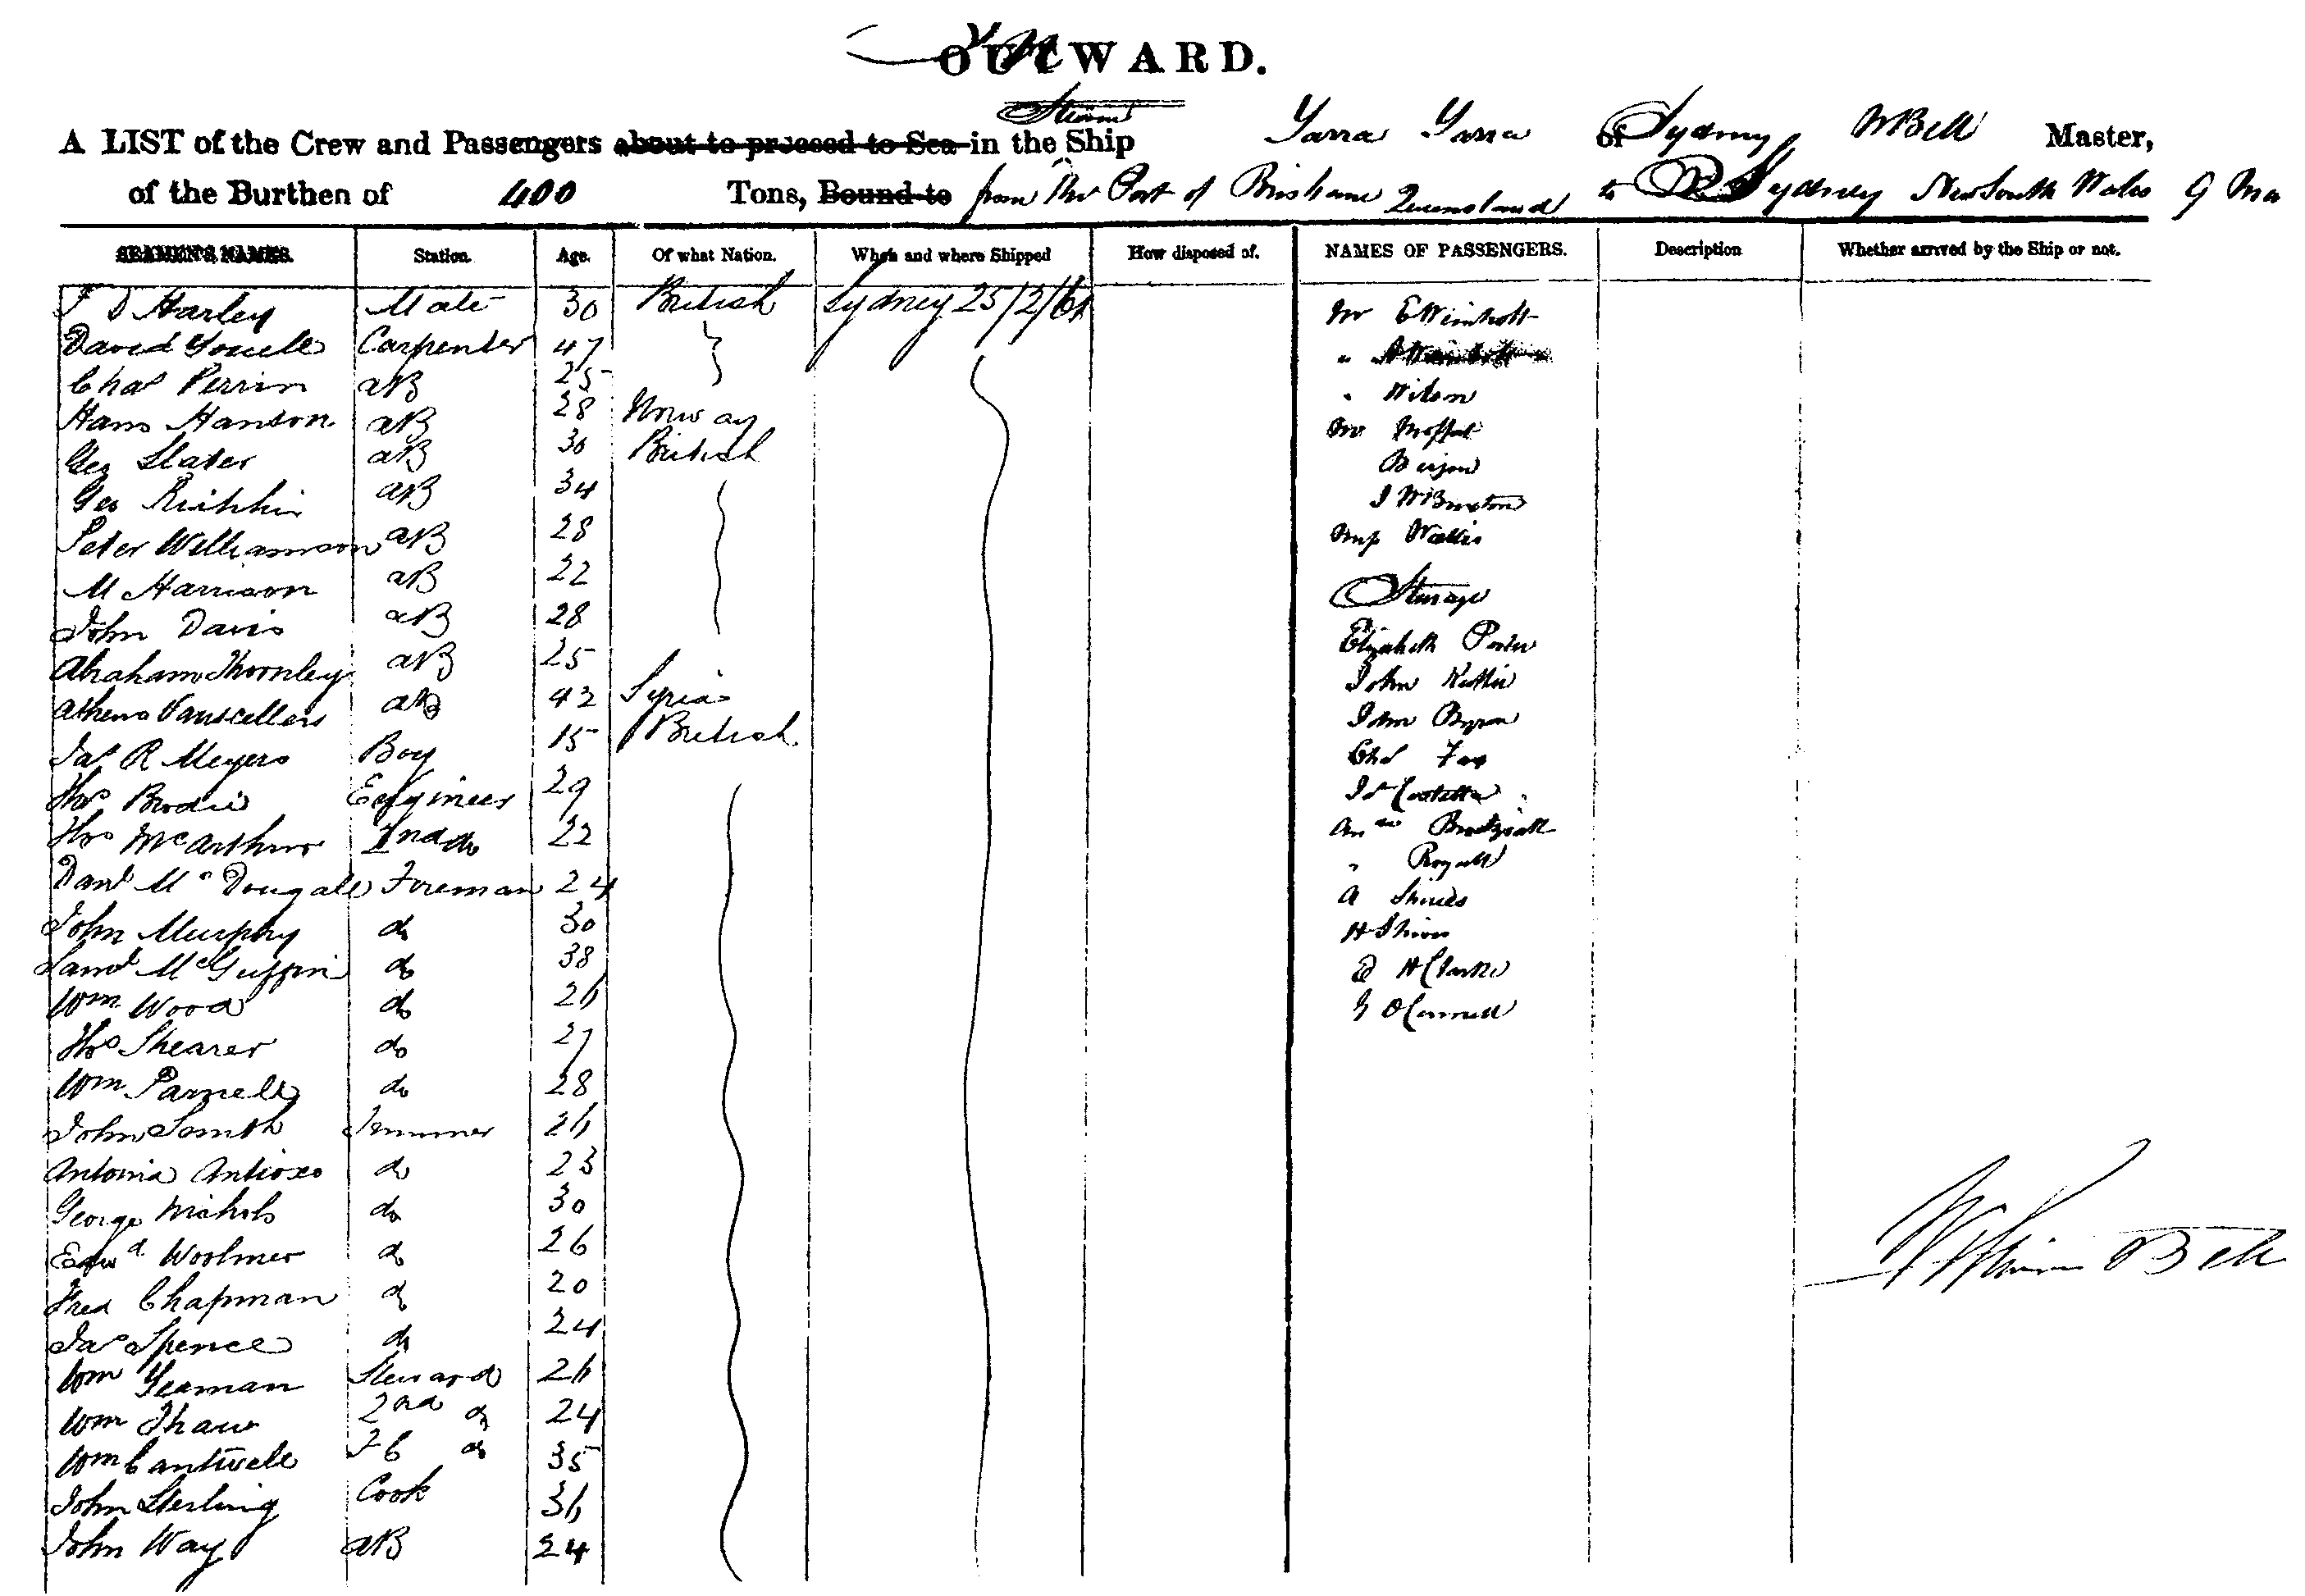 OUTWARD.
A LIST of the Crew and Passengers about to proceed to Sea in the Steam Ship Yarra Yarra of Sydney, W Bell Master,
of the Burthen of 400 Tons, Bound to from the Port of Brisbane Queensland to Sydney New South Wales 9 Mar
SEAMEN'S NAMES. Station. Age. Of what Nation. When and where Shipped How disposed of. NAMES OF PASSENGERS. Description Whether arrived by the Ship or not.
J D Harley Mate 30 British Sydney 25/2/61 Mr E Weinholt
David Youell Carpenter 47 " A Weinholt
Chas Perrin aB 25 " Wilson
Hans Hanson aB 28 Norway Mr Moffat
Geo Slater aB 30 British
Geo aB 34 J W Buxton
Peter Williamson aB 28 Mrs Wallis
M Harrison aB 22 Steerage
John Davis aB 28 Elizabeth Porter
Abraham Thornley aB 25 John
Athens aB 42 Syria John Byron
Jas R Meyers Boy 15 British Chas Fox
Thos Brodie Engineer 29
Thos McArthur 2nd do 22
Danl McDougall Fireman 24 " Royall
John Murphy do 30 A Shires
Saml McGuffin do 38 H Shires
Wm Wood do 26 H Clarke
Thos Shearer do 27 J O Connell
Wm Parnell do 28
John Smith Trimmer 26
Antonia Antioxo do 23
George Nichols do 30
Edwd Woolmer do 26 William Bell
Fred Chapman do 20
Jas Spence do 24
Wm Yeaman Steward 26
Wm Thaw 2nd do 24
Wm Cantwell F C do 35
John Sterling Cook 36
John Way aB 24